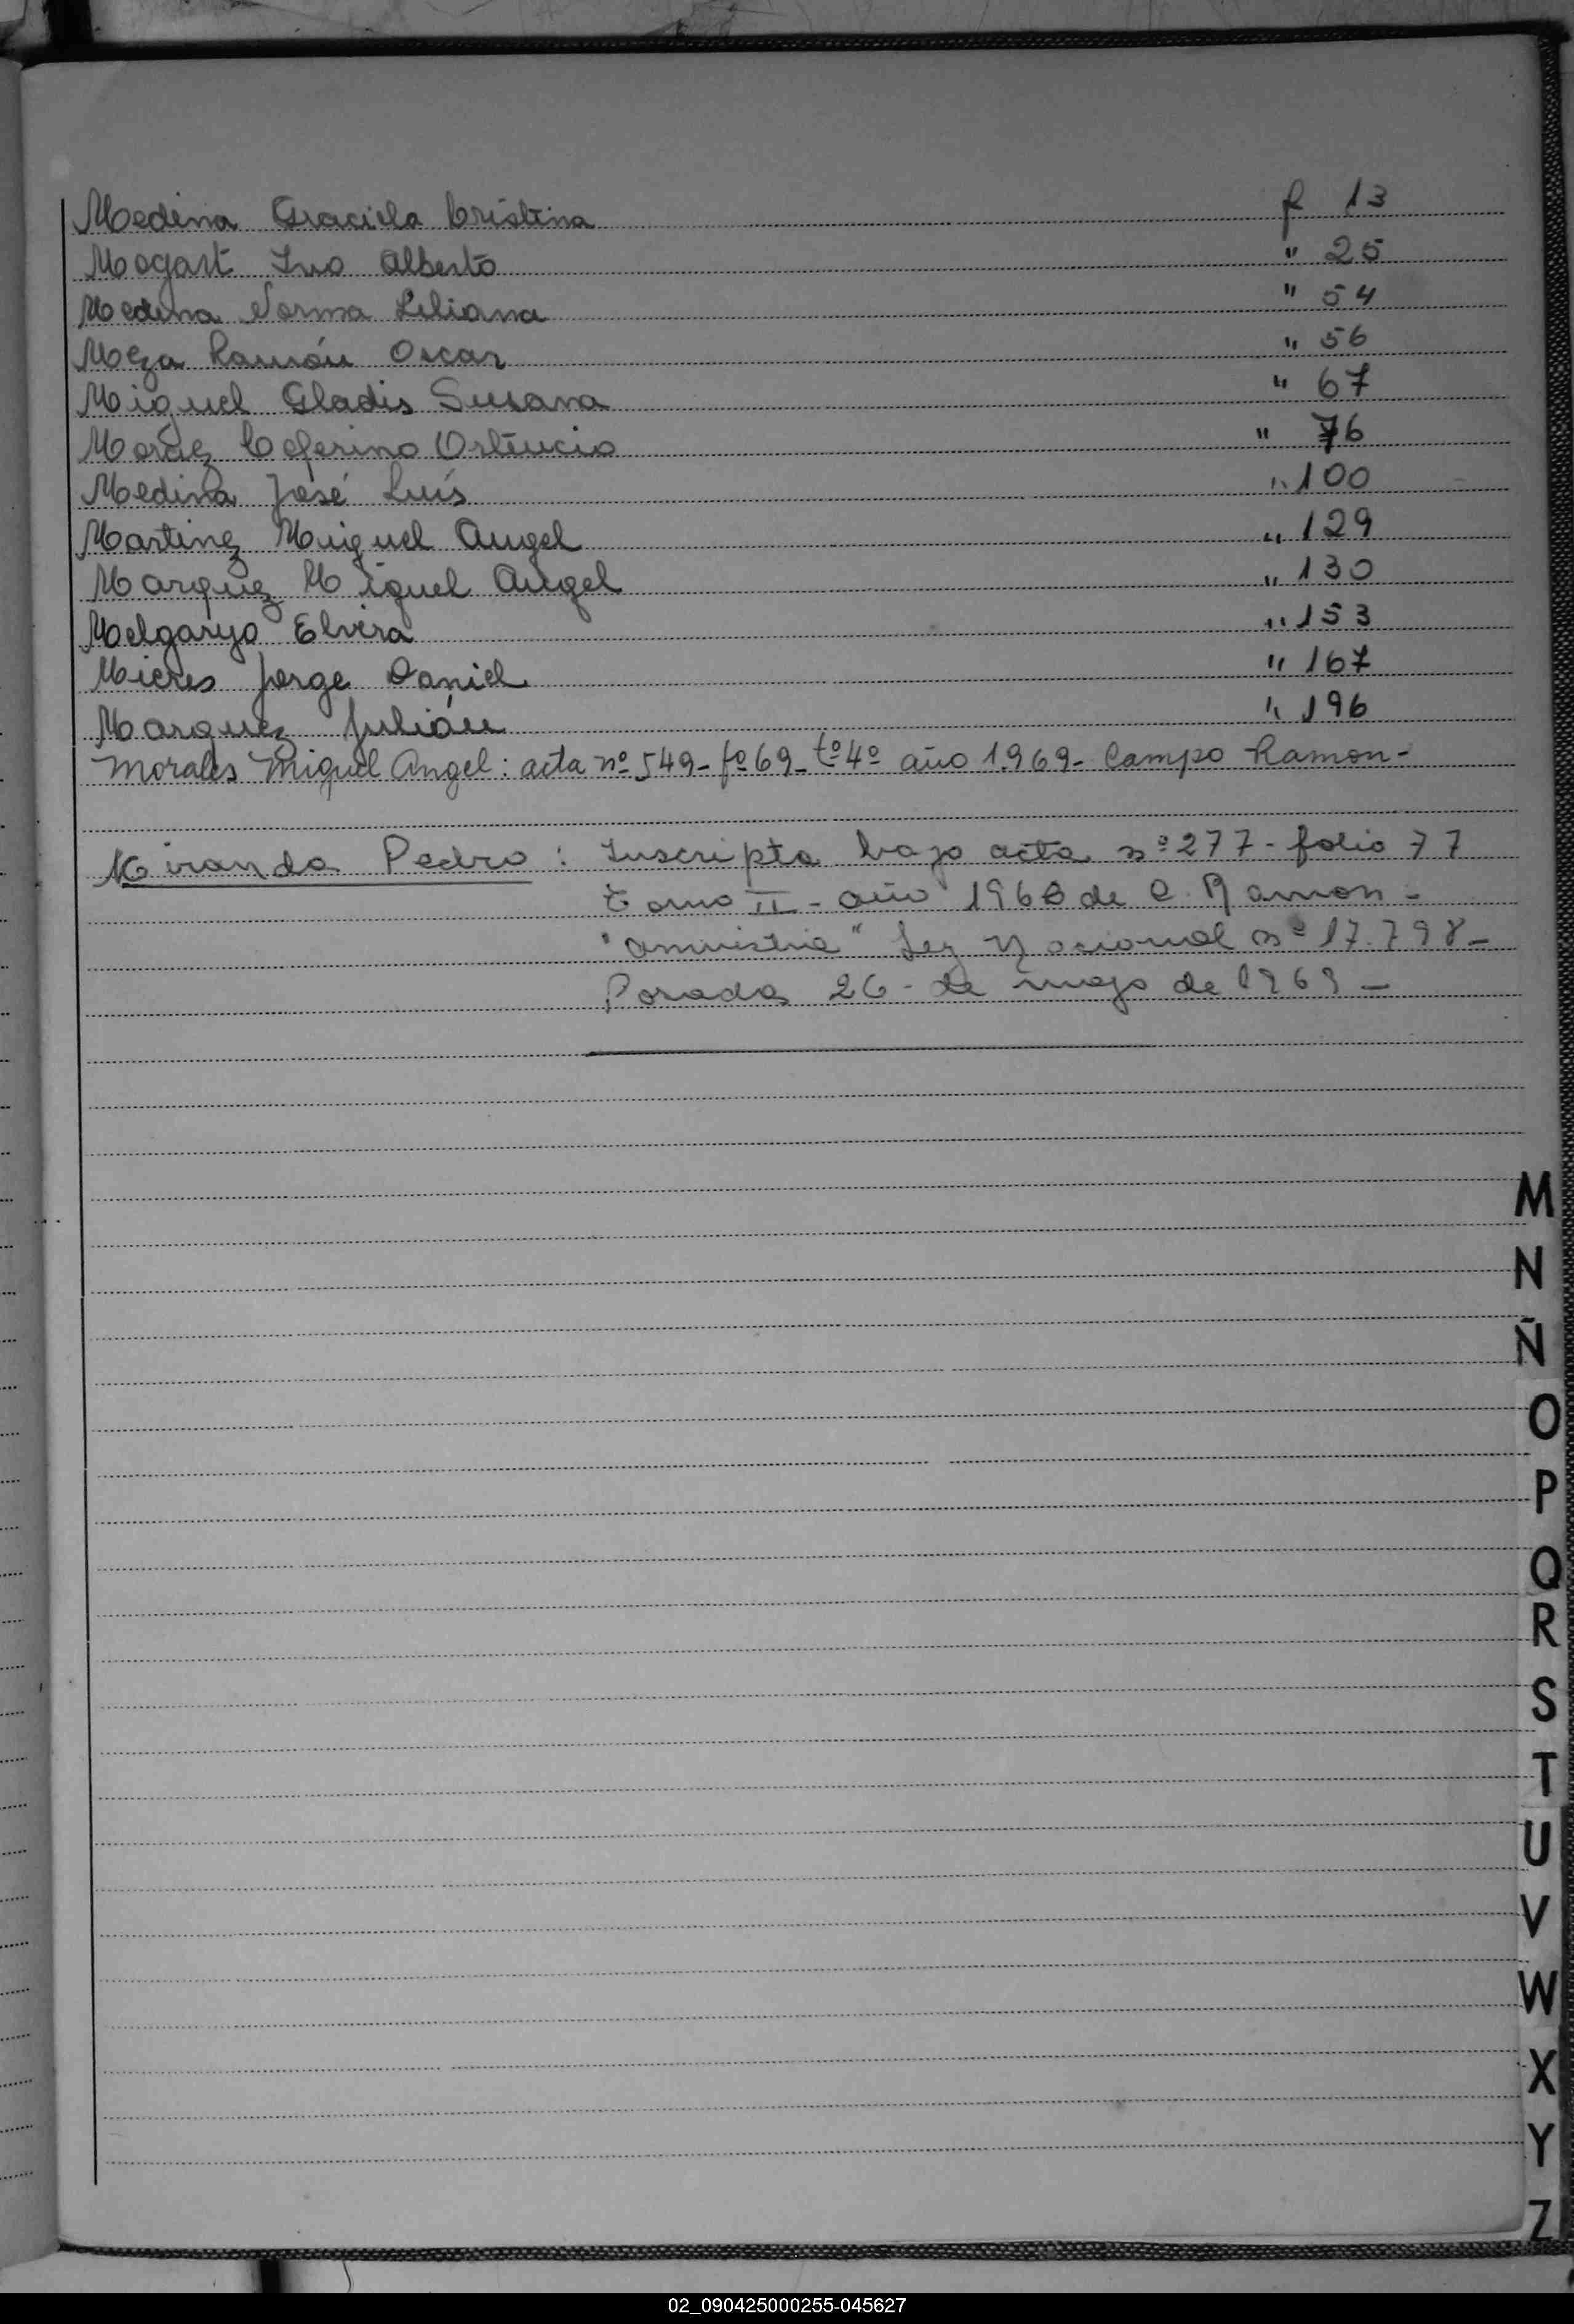 Medina Graciela Cristina f 13
Mogart Ivo Alberto " 25
Medina Norma Liliana " 54
Meza Ramón Oscar " 56
Miguel Gladis Susana " 67
Moraez Ceferino " 76
Medina José Luís " 100
Martinez Miguel Angel " 129
Marquez Miguel Angel " 130
Melgarejo Elvira " 153
Mieres Jorge Daniel " 167
Marquez Julián " 196
Morales Miguel Angel: acta nº 549- fº 69- tº 4º año 1.969- Campo Ramon-
Miranda Pedro: Inscripta bajo acta nº 277- folio 77
Tomo II- año 1968 de C. Ramon-
"amnistia" Ley Nacional nº 17.798-
Posadas 26- de mayo de 1969-
M
N
Ñ
O
P
Q
R
S
T
U
V
W
X
Y
Z
02_090425000255-045627